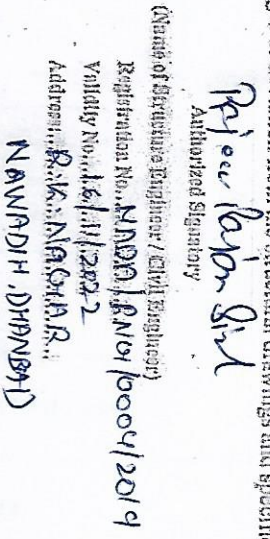 drawings and specific
Rajeev Rajan Sinl
Authorized Signatory
(Name of Structure Engineer / Civil Engineer)
Registration No. MADA/ENG/0004/2019
Validity No. 16/11/2022
Address: R.K. NAGAR
NAWADIH, DHANBAD